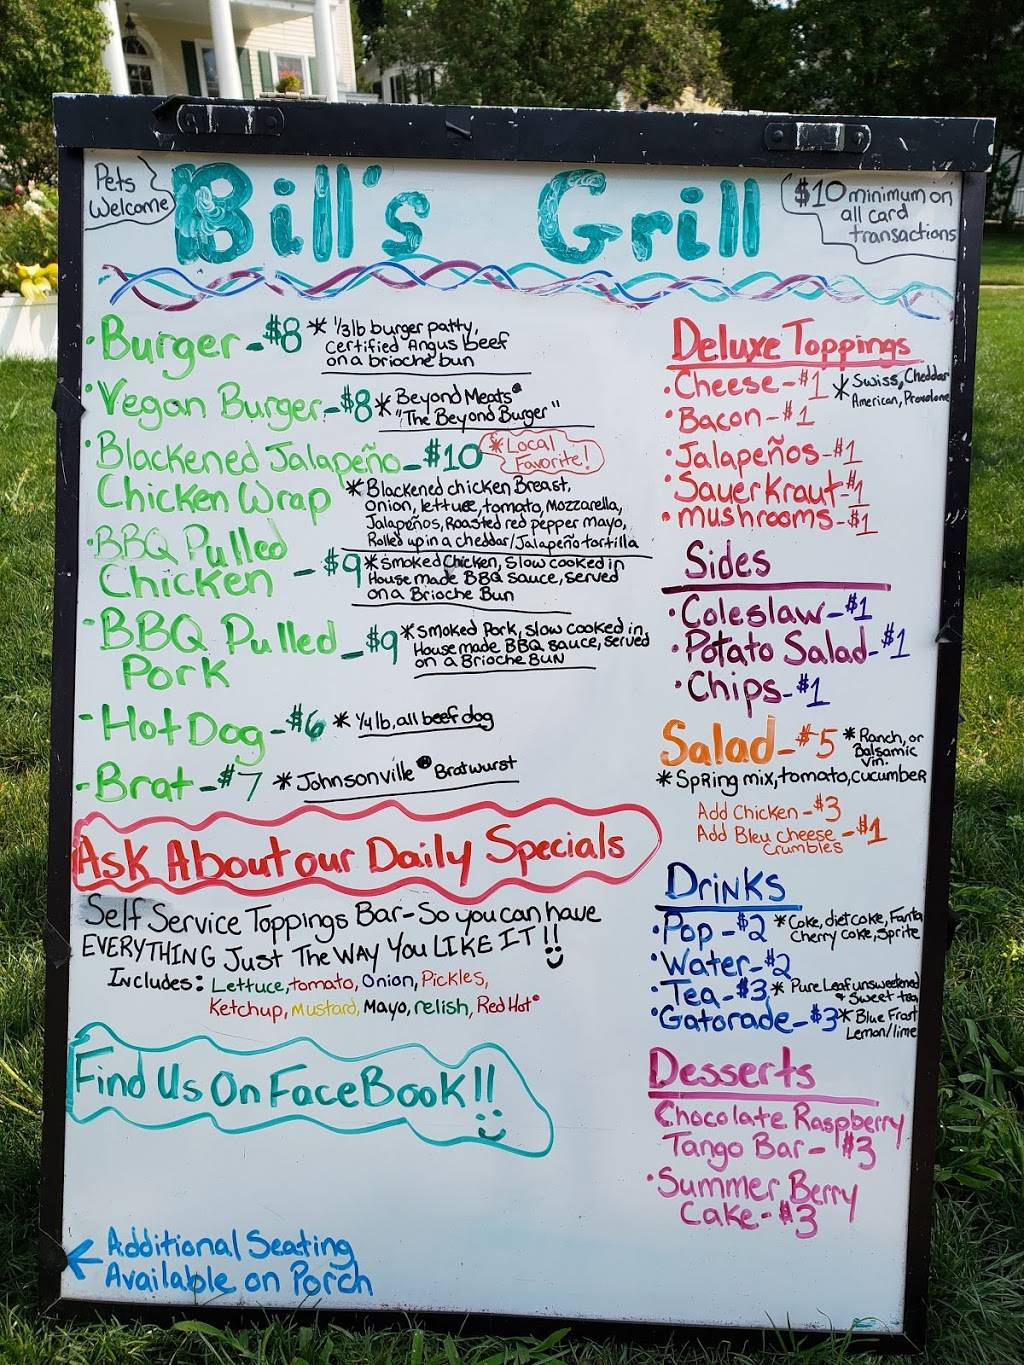 Pets
Welcome
Bill's Grill
$10 minimum on
all card
transactions
·Burger-$8 * 1/3lb burger patty,
certified Angus beef
on a brioche bun
·Vegan Burger-$8 * Beyond Meats®
"The Beyond Burger"
·Blackened Jalapeño-$10 *Local
Favorite!
Chicken Wrap *Blackened chicken Breast,
onion, lettuce, tomato, Mozzarella,
Jalapeños, Roasted red pepper mayo,
Rolled up in a cheddar/Jalapeño tortilla
·BBQ Pulled
Chicken -$9 *smoked Chicken, Slow cooked in
House made BBQ sauce, served
on a Brioche Bun
·BBQ Pulled
Pork -$9 *smoked Pork, slow cooked in
House made BBQ sauce, served
on a Brioche BUN
-Hot Dog-$6 * 1/4 lb, all beef dog
-Brat-$7 * Johnsonville® Bratwurst
Ask About our Daily Specials
Self Service Toppings Bar-So you can have
EVERYTHING Just The WAY You LIKE IT!!
Includes: Lettuce, tomato, Onion, Pickles,
Ketchup, mustard, Mayo, relish, Red Hot®
Find Us On FaceBook!!
← Additional Seating
Available on Porch
Deluxe Toppings
·Cheese-$1 *Swiss, Cheddar
American, Provolone
·Bacon-$1
·Jalapeños-$1
·Sauerkraut-$1
·mushrooms-$1
Sides
·Coleslaw-$1
·Potato Salad-$1
·Chips-$1
Salad-$5 *Ranch, or
Balsamic
Vin.
*Spring mix, tomato, cucumber
Add Chicken-$3
Add Bleu cheese -$1
Crumbles
Drinks
·Pop-$2 *Coke, diet coke, Fanta
Cherry coke, Sprite
·Water-$2
·Tea-$3 * Pure Leaf unsweetened
& Sweet tea
·Gatorade-$3 * Blue Frost
Lemon/lime
Desserts
Chocolate Raspberry
Tango Bar-$3
·Summer Berry
Cake-$3